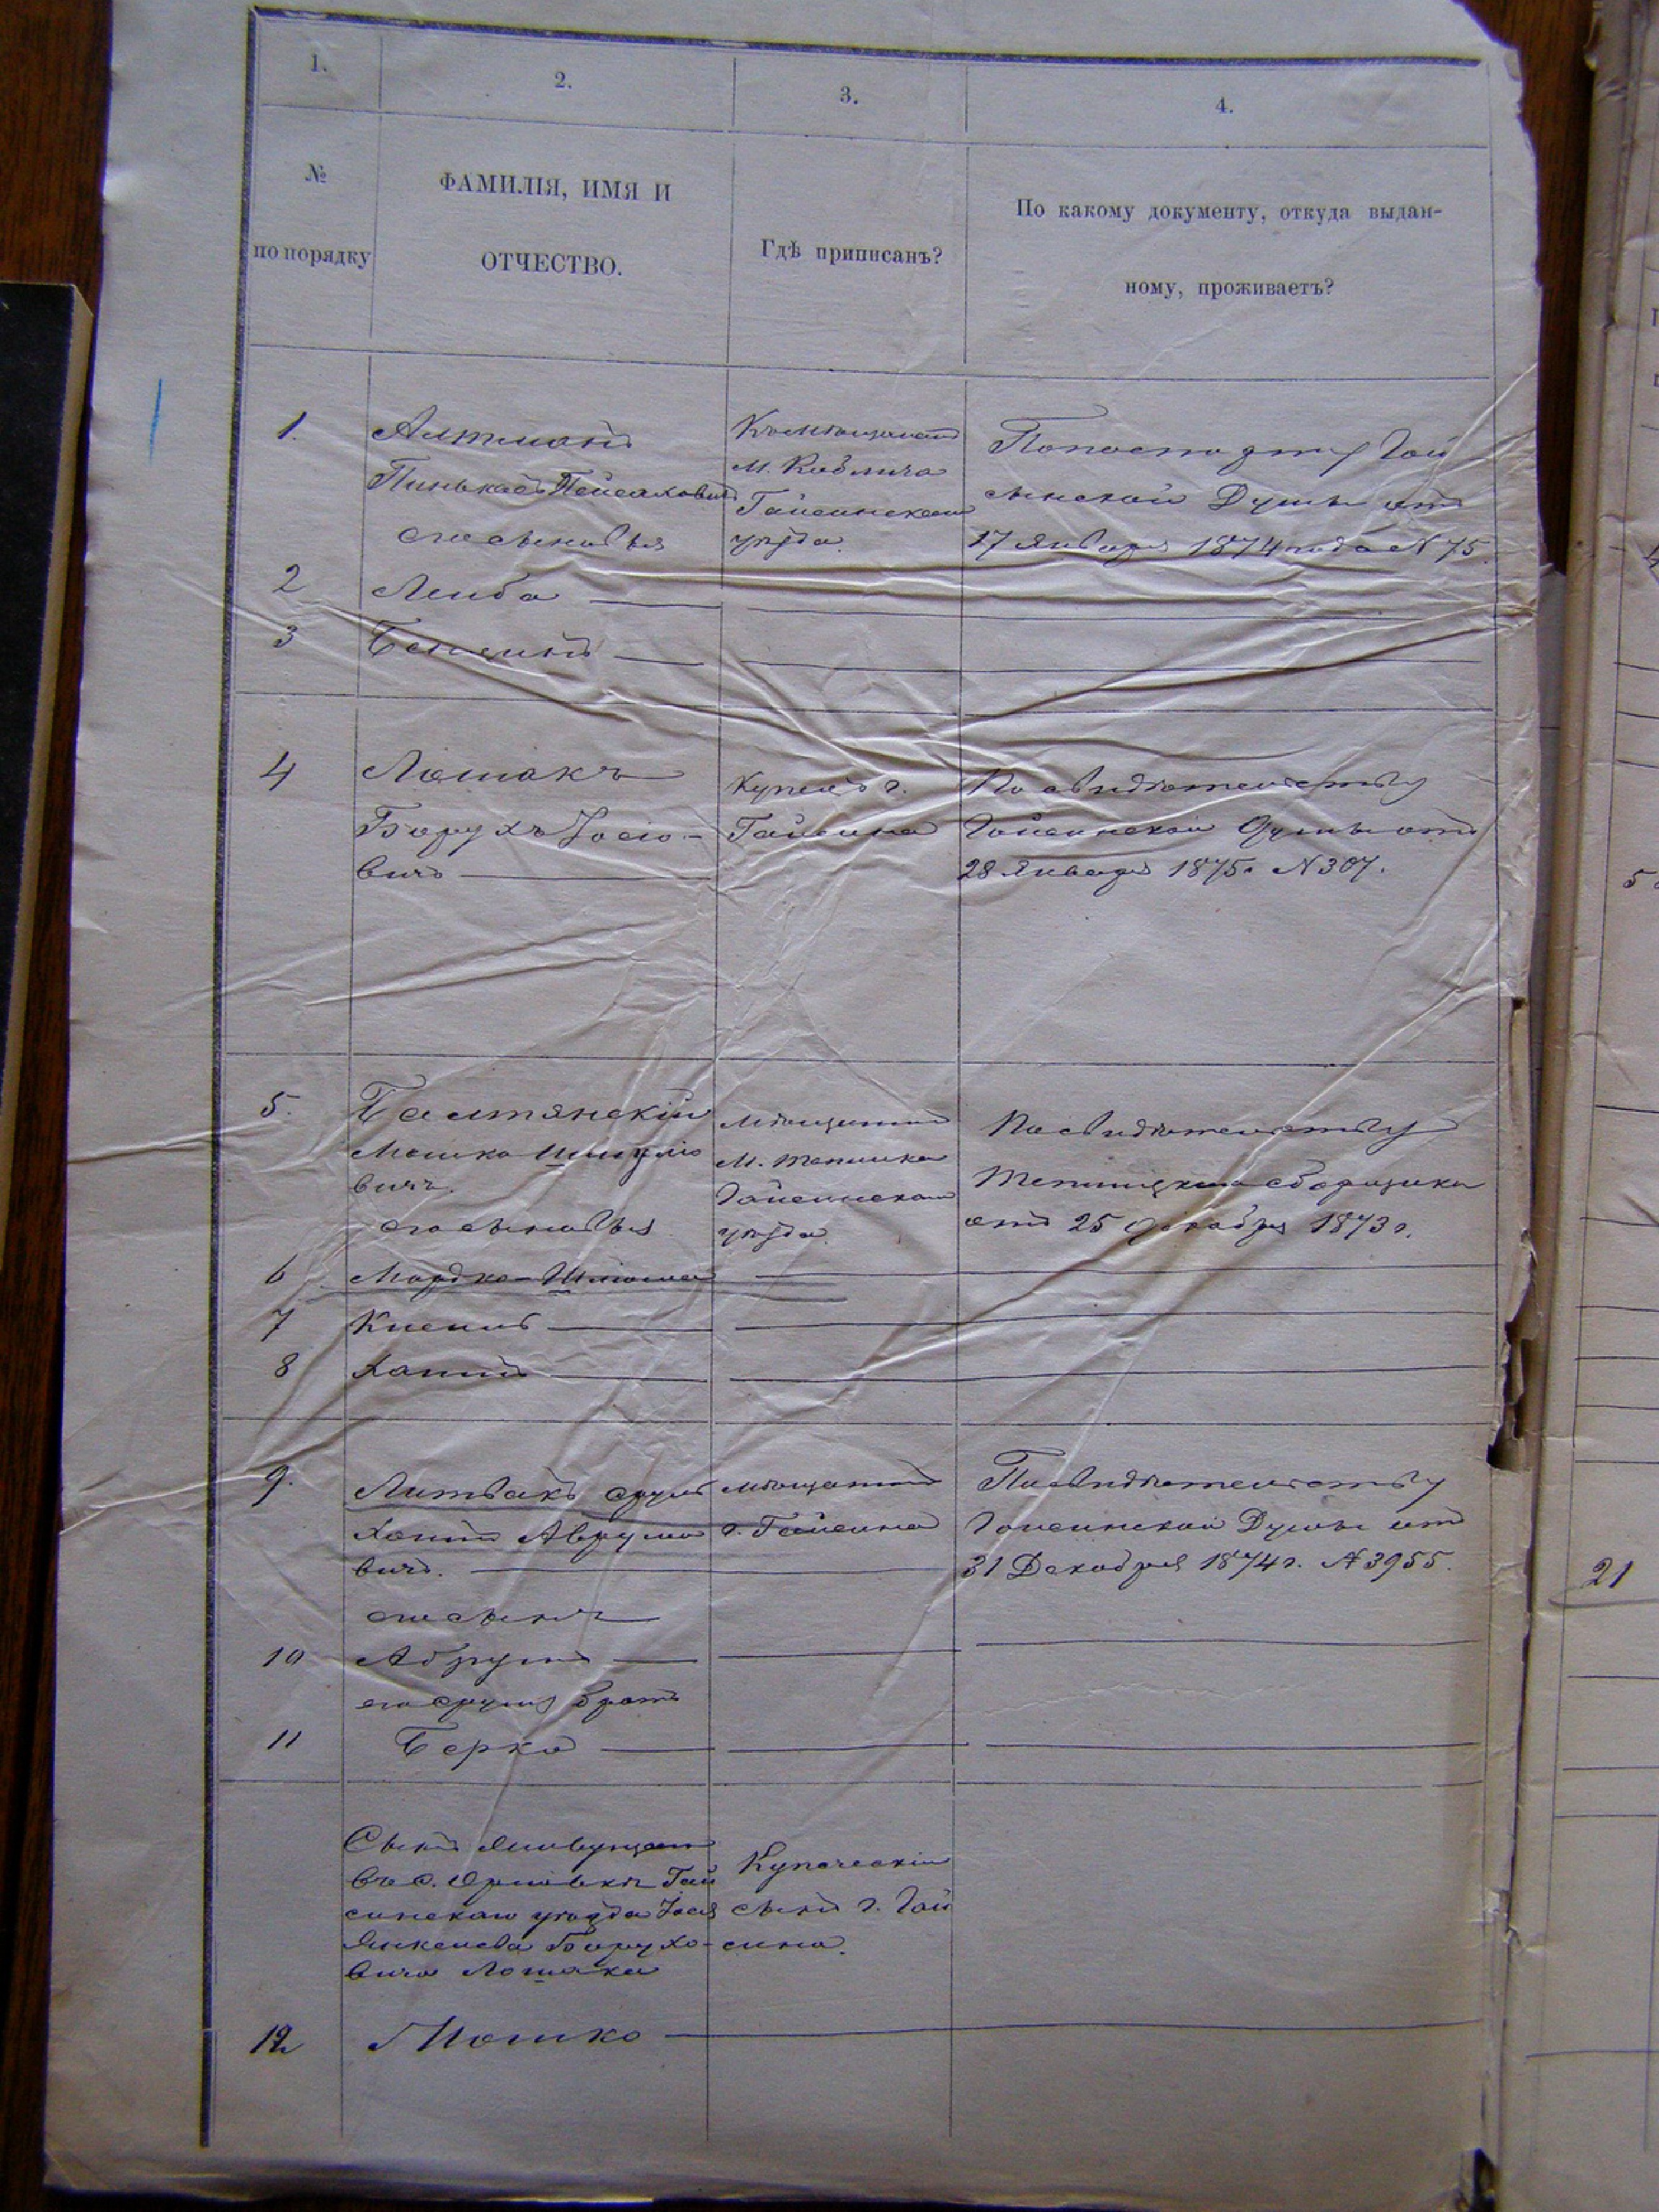 1.
2.
3.
4.
№
по порядку
ФАМИЛІЯ, ИМЯ И
ОТЧЕСТВО.
Гдѣ приписанъ?
По какому документу, откуда выдан-
ному, проживаетъ?
1.
Алтманъ
Пинькасъ Пейсаховичъ
его сыновья
м. Кублича
Гайсинскаго
уѣзда.
Гай
синской Думы отъ
17 Января 1874 года № 75.
2
Лейба
3
Беньяминъ
4
Лошакъ
Борухъ Іосіо-
вичъ
Купецъ г.
Гайсина
По свидѣтельству
Гайсинской Думы отъ
28 Января 1875 г. № 307.
5.
Балтянскій
Мошко Шмуліо
вичъ.
его сыновья
мѣщанинъ
м.
Гайсинскаго
уѣзда.
По свидѣтельству
сборщика
отъ 25 Декабря 1873 г.
6
Мордко-Шліома
7
8
Хаимъ
9.
Литвакъ Сруль
Хаимъ Аврумо
вичъ.
мѣщанинъ
г. Гайсина
По свидѣтельству
Гайсинской Думы отъ
31 Декабря 1874 г. № 3955.
его сынъ
10
Абрумъ
его Сруля братъ
11
Берко
Сынъ живущаго
въ с. Орловкѣ Гай
синскаго уѣзда Іося
Янкелева Борухо-
вича Лошака
Купеческій
сынъ г. Гай
сина.
12
Мошко
5
21